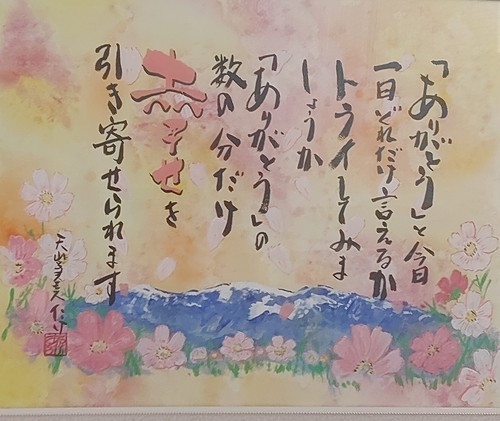 「ありがとう」と今日
一日どれだけ言えるか
トライしてみま
しょうか
「ありがとう」の
数の分だけ
幸せを
引き寄せられます